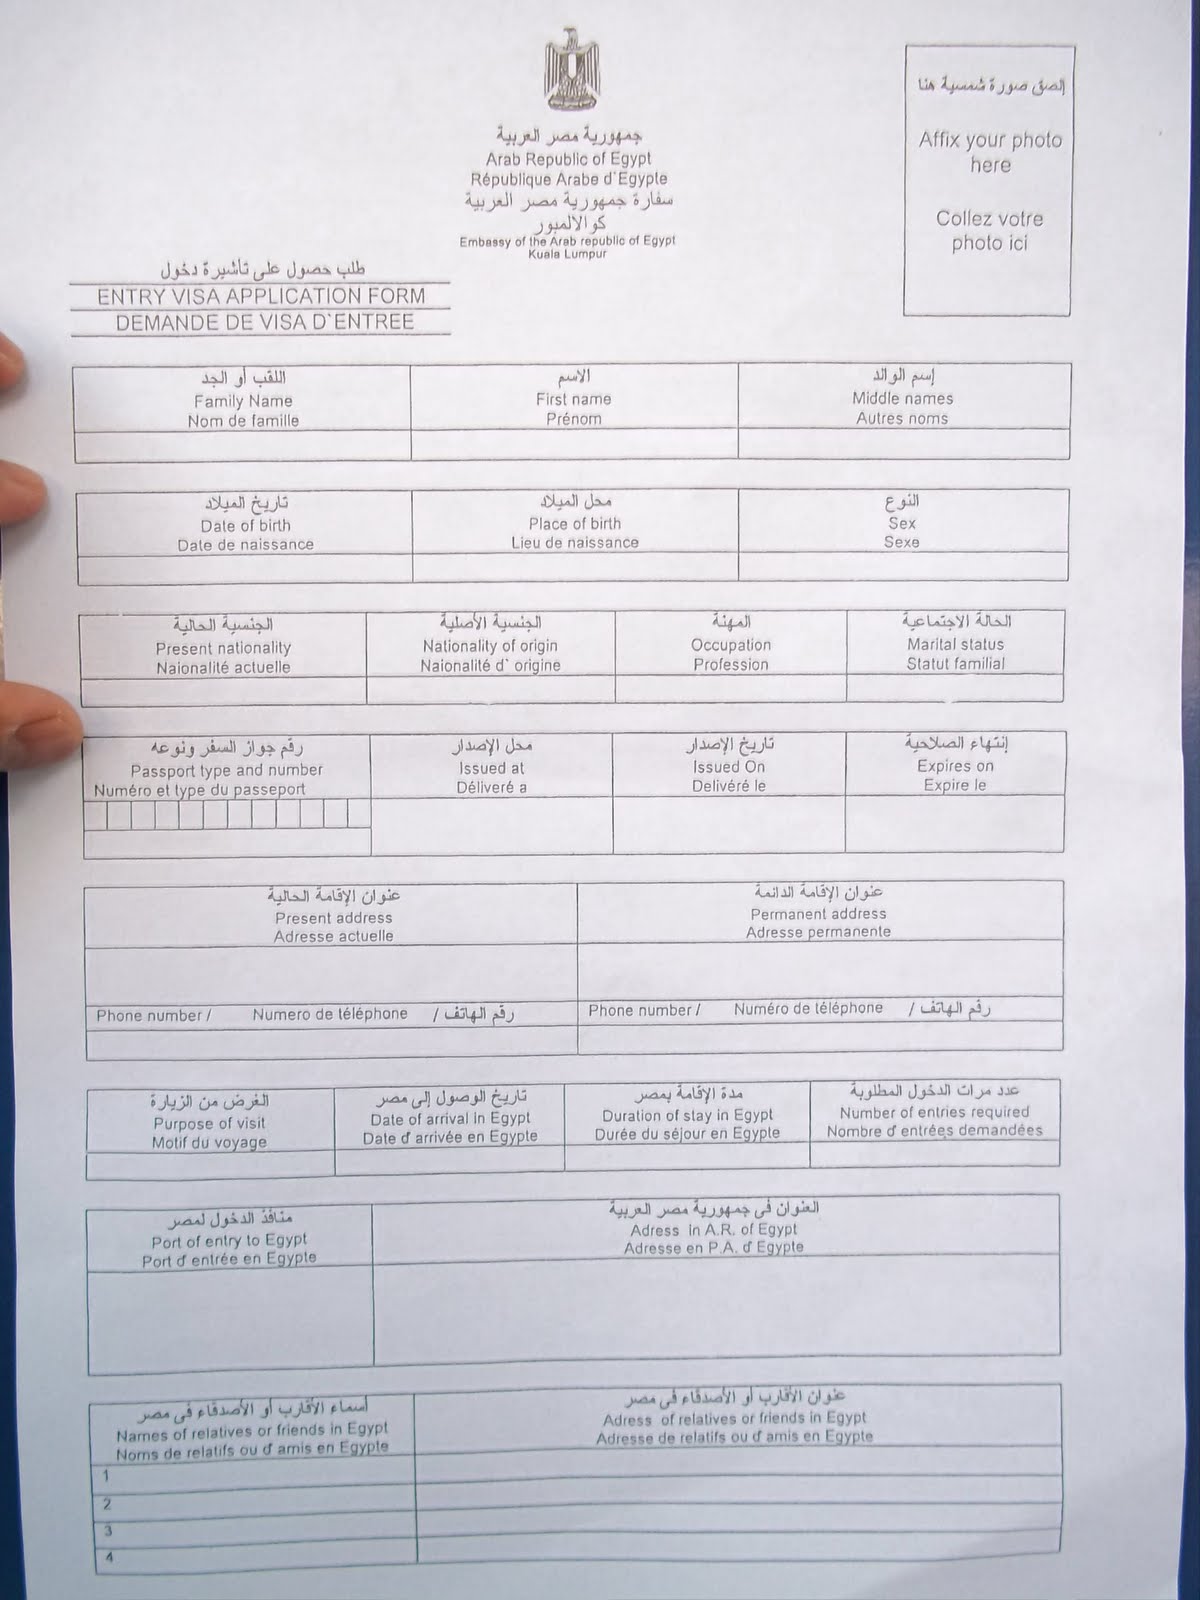 إلصق صورة شمسية هنا
Affix your photo
here
Collez votre
photo ici
جمهورية مصر العربية
Arab Republic of Egypt
République Arabe d`Egypte
سفارة جمهورية مصر العربية
كوالالمبور
Embassy of the Arab republic of Egypt
Kuala Lumpur
طلب حصول على تأشيرة دخول
ENTRY VISA APPLICATION FORM
DEMANDE DE VISA D`ENTREE
اللقب أو الجد
Family Name
Nom de famille
الاسم
First name
Prénom
إسم الوالد
Middle names
Autres noms
تاريخ الميلاد
Date of birth
Date de naissance
محل الميلاد
Place of birth
Lieu de naissance
النوع
Sex
Sexe
الجنسية الحالية
Present nationality
Naionalité actuelle
الجنسية الأصلية
Nationality of origin
Naionalité d` origine
المهنة
Occupation
Profession
الحالة الاجتماعية
Marital status
Statut familial
رقم جواز السفر ونوعه
Passport type and number
Numéro et type du passeport
محل الإصدار
Issued at
Déliveré a
تاريخ الإصدار
Issued On
Delivéré le
إنتهاء الصلاحية
Expires on
Expire le
عنوان الإقامة الحالية
Present address
Adresse actuelle
عنوان الإقامة الدائمة
Permanent address
Adresse permanente
Phone number / Numero de téléphone / رقم الهاتف
Phone number / Numéro de téléphone / رقم الهاتف
الغرض من الزيارة
Purpose of visit
Motif du voyage
تاريخ الوصول إلى مصر
Date of arrival in Egypt
Date d' arrivée en Egypte
مدة الإقامة بمصر
Duration of stay in Egypt
Durée du séjour en Egypte
عدد مرات الدخول المطلوبة
Number of entries required
Nombre d' entrées demandées
منافذ الدخول لمصر
Port of entry to Egypt
Port d' entrée en Egypte
العنوان فى جمهورية مصر العربية
Adress in A.R. of Egypt
Adresse en P.A. d' Egypte
أسماء الأقارب أو الأصدقاء فى مصر
Names of relatives or friends in Egypt
Noms de relatifs ou d' amis en Egypte
عنوان الأقارب أو الأصدقاء فى مصر
Adress of relatives or friends in Egypt
Adresse de relatifs ou d' amis en Egypte
1
2
3
4